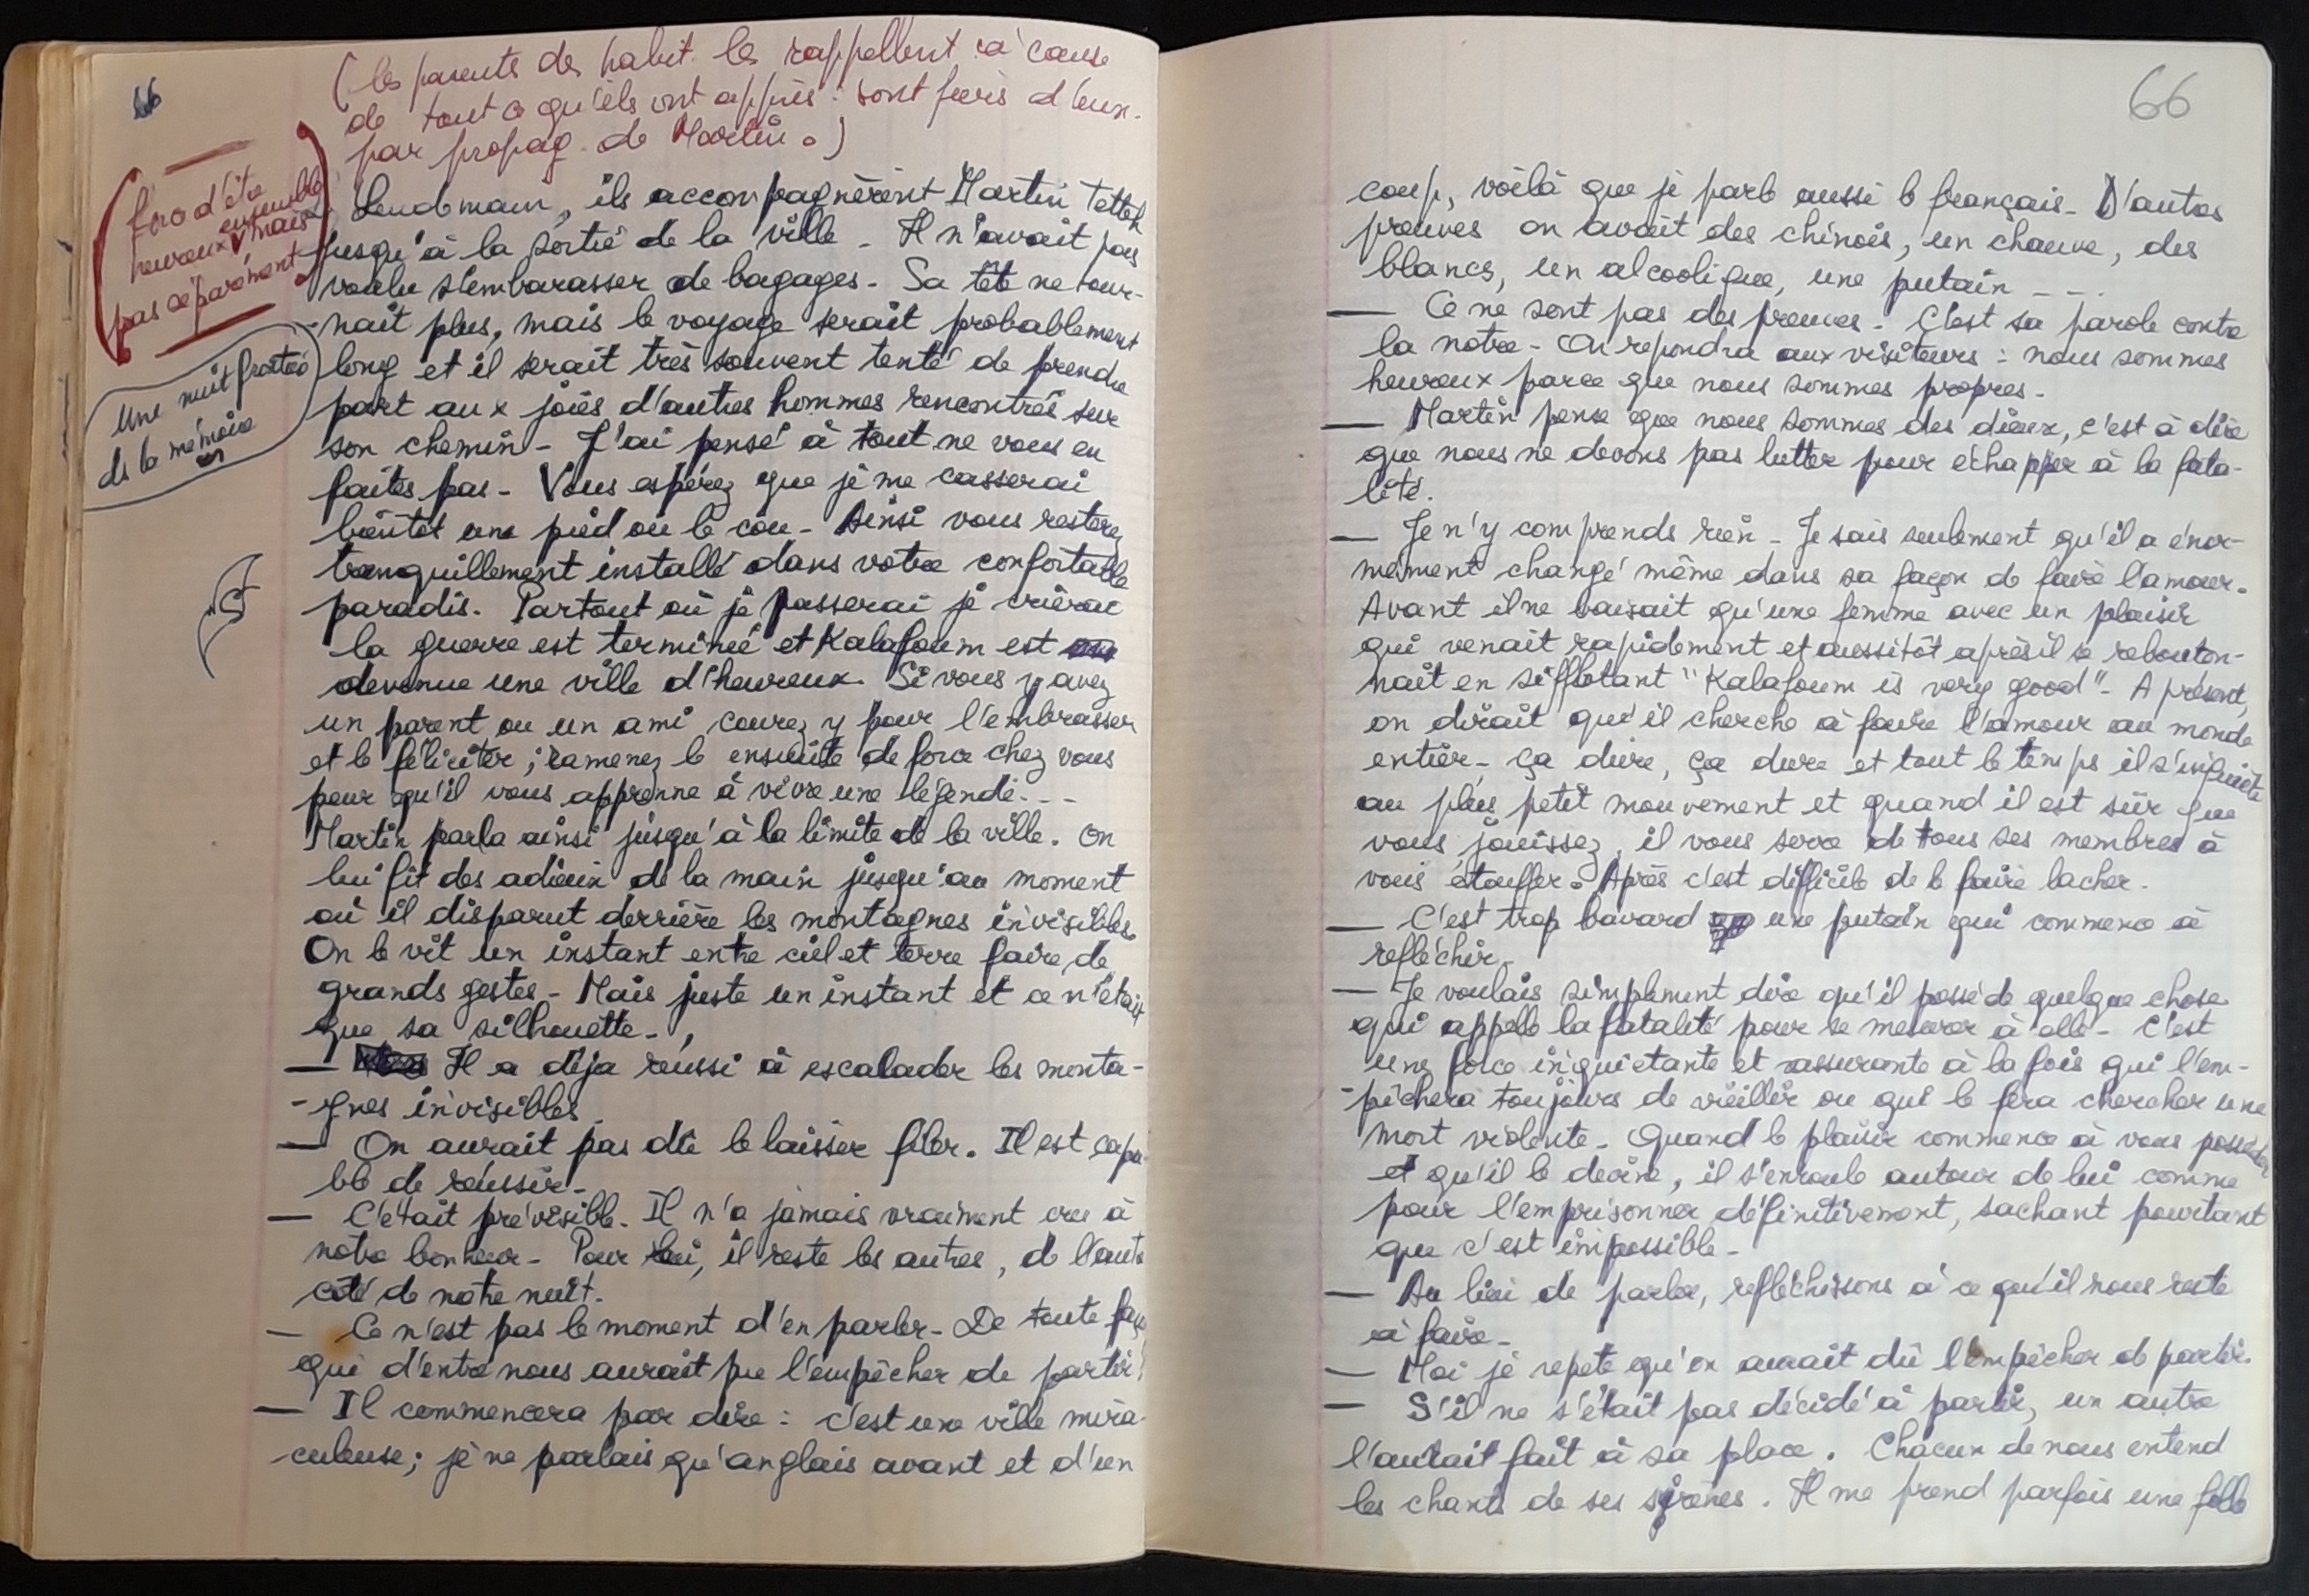 66
(les parents des habit. les rappellent à cause
de tout ce qu'ils ont appris : sont fiers d'eux.
par propag. de Martin.)
d'être
heureux ensemble mais
pas séparément
Une nuit frottée
de la mémoire
Lendemain, ils accompagnèrent Martin Tetteh
jusqu'à la sortie de la ville - Il n'avait pas
voulu s'embarasser de bagages - Sa tête ne tour-
-nait plus, mais le voyage serait probablement
long et il serait très souvent tenté de prendre
part aux joies d'autres hommes rencontrés sur
son chemin - J'ai pensé à tout ne vous en
faites pas - Vous espérez que je me casserai
bientôt une pied ou le cou - Ainsi vous resterez
tranquillement installé dans votre confortable
paradis. Partout où je passerai je crierai
la guerre est terminée et Kalafoum est
devenue une ville d'heureux. Si vous y avez
un parent ou un ami courez y pour l'embrasser
et le féliciter ; ramenez le ensuite de force chez vous
pour qu'il vous apprenne à vivre une légende - - -
Martin parla ainsi jusqu'à la limite de la ville. On
lui fit des adieux de la main jusqu'au moment
où il disparut derrière les montagnes invisibles.
On le vit un instant entre ciel et terre faire de
grands gestes - Mais juste un instant et ce n'était
que sa silhouette -
— Il a déja réussi à escalader les monta-
-gnes invisibles
— On aurait pas dû le laisser filer. Il est capa-
ble de réussir -
— C'était prévisible. Il n'a jamais vraiment cru à
notre bonheur - Pour lui, il reste les autres, de l'autre
coté de notre nuit.
— Ce n'est pas le moment d'en parler - De toute faço
qui d'entre nous aurait pu l'empêcher de partir?
— Il commencera par dire : c'est une ville mira-
culeuse ; je ne parlais qu'anglais avant et d'un
66
coup, voilà que je parle aussi le français - D'autres
preuves on avait des chinois, un chauve, des
blancs, un alcoolique, une putain - - -
— Ce ne sont pas des preuves - C'est sa parole contre
la notre - On repondra aux visiteurs : nous sommes
heureux parce que nous sommes propres -
— Martin pense que nous sommes des dieux, c'est à dire
que nous ne devons pas lutter pour échapper à la fata-
lité.
— Je n'y comprends rien - Je sais seulement qu'il a énor-
mément changé même dans sa façon de faire l'amour.
Avant il ne baisait qu'une femme avec un plaisir
qui venait rapidement et aussitôt après il se rebouton-
nait en sifflotant "Kalafoum is very good" - A présent,
on dirait qu'il cherche à faire l'amour au monde
entier - ça dure, ça dure et tout le temps il s'inquiète
au plus petit mouvement et quand il est sûr que
vous jouissez, il vous serre de tous ses membres à
vous étouffer. Après c'est difficile de le faire lacher.
— C'est trop bavard une putain qui commence à
reflechir -
— Je voulais simplement dire qu'il possède quelque chose
qui appelle la fatalité pour se mesurer à elle - C'est
une force inquietante et rassurante à la fois qui l'em-
-pêchera toujours de vieillir ou qui le fera chercher une
mort violente - Quand le plaisir commence à vous posseder
et qu'il le devine, il s'enroule autour de lui comme
pour l'emprisonner définitivement, sachant pourtant
que c'est impossible -
— Au lieu de parler, refléchissons à ce qu'il nous reste
à faire -
— Moi je repete qu'on aurait dû l'empêcher de partir.
— S'il ne s'était pas décidé à partir, un autre
l'aurait fait à sa place. Chacun de nous entend
les chants de ses sirènes. Il me prend parfois une folle